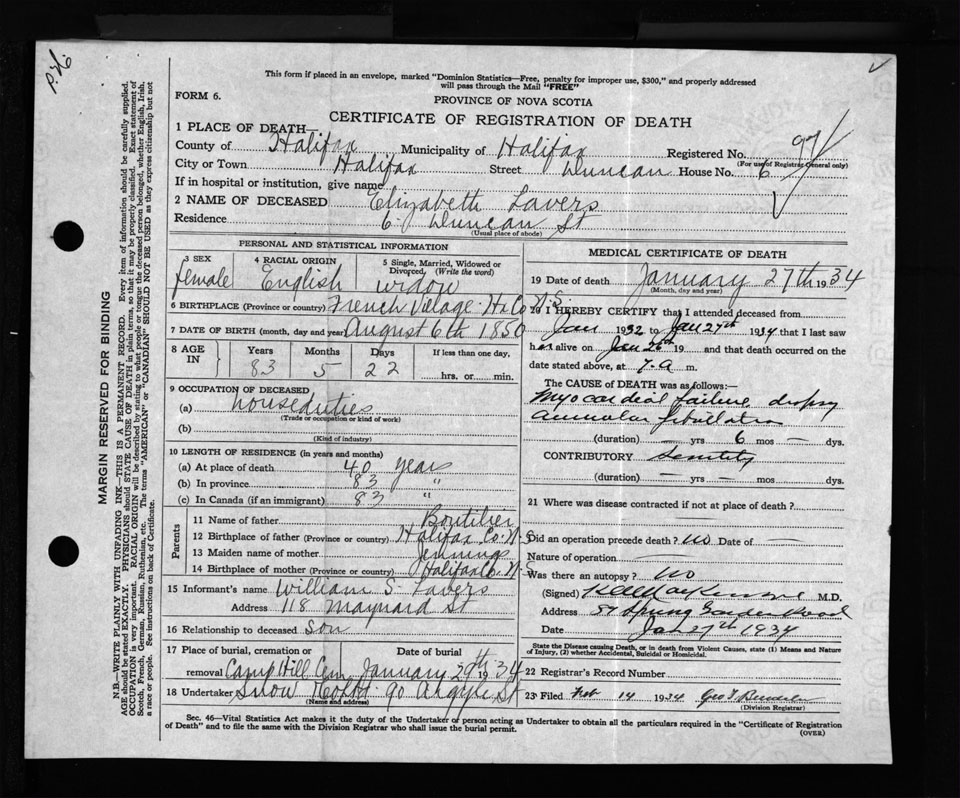 P.H.
This form if placed in an envelope, marked "Dominion Statistics—Free, penalty for improper use, $300," and properly addressed
will pass through the Mail "FREE"
FORM 6.
PROVINCE OF NOVA SCOTIA
CERTIFICATE OF REGISTRATION OF DEATH
1 PLACE OF DEATH—
County of Halifax Municipality of Halifax Registered No.
(For use of Registrar General only)
City or Town Halifax Street Duncan House No. 6
If in hospital or institution, give name
2 NAME OF DECEASED Elizabeth Lavers
Residence 6 Duncan St
(Usual place of abode)
PERSONAL AND STATISTICAL INFORMATION
3 SEX 4 RACIAL ORIGIN 5 Single, Married, Widowed or
Divorced (Write the word)
female English widow
6 BIRTHPLACE (Province or country) French Village Hx Co N.S.
7 DATE OF BIRTH (month, day and year) August 6th 1850
8 AGE IN Years Months Days If less than one day,
83 5 22 hrs. or min.
9 OCCUPATION OF DECEASED
(a) house duties
(Trade or occupation or kind of work)
(b)
(Kind of industry)
10 LENGTH OF RESIDENCE (in years and months)
(a) At place of death 40 years
(b) In province 83 "
(c) In Canada (if an immigrant) 83 "
Parents
11 Name of father Boutilier
12 Birthplace of father (Province or country) Halifax Co. N.S.
13 Maiden name of mother Jennings
14 Birthplace of mother (Province or country) Halifax Co. N.S.
15 Informant's name William S. Lavers
Address 118 Maynard St
16 Relationship to deceased son
17 Place of burial, cremation, Date of burial
removal Camp Hill Cem January 29th 1934
18 Undertaker Snow 90 Argyle St
(Name and address)
MEDICAL CERTIFICATE OF DEATH
19 Date of death January 27th 1934
(Month, day and year)
20 I HEREBY CERTIFY that I attended deceased from
Jan 1932 to Jan 27th 1934 that I last saw
her alive on Jan 26th 19 and that death occurred on the
date stated above, at 7. a m.
The CAUSE of DEATH was as follows:—
Myocardial failure dropsy
Auricular fibrillation
(duration) — yrs 6 mos — dys.
CONTRIBUTORY Senility
(duration) — yrs — mos — dys.
21 Where was disease contracted if not at place of death?
Did an operation precede death? no Date of
Nature of operation
Was there an autopsy? no
(Signed) M.D.
Address Spring Garden Road
Date Jan 27th 1934
State the Disease causing Death, or in death from Violent Causes, state (1) Means and Nature
of Injury, (2) whether Accidental, Suicidal or Homicidal.
22 Registrar's Record Number
23 Filed Feb 14 1934 Geo
(Division Registrar)
Sec. 46—Vital Statistics Act makes it the duty of the Undertaker or person acting as Undertaker to obtain all the particulars required in the "Certificate of Registration
of Death" and to file the same with the Division Registrar who shall issue the burial permit.
(OVER)
MARGIN RESERVED FOR BINDING
N.B.—WRITE PLAINLY WITH UNFADING INK—THIS IS A PERMANENT RECORD. Every item of information should be carefully supplied.
AGE should be stated EXACTLY. PHYSICIANS should STATE CAUSE OF DEATH in plain terms, so that it may be properly classified. Exact statement of
OCCUPATION is very important. RACIAL ORIGIN will be described by stating to what people or tongue the deceased person belonged, whether English, Irish,
Scotch, French, German, Russian, Ruthenian, etc. The terms "AMERICAN" or "CANADIAN" SHOULD NOT BE USED as they express citizenship but not
a race or people. See instructions on back of Certificate.